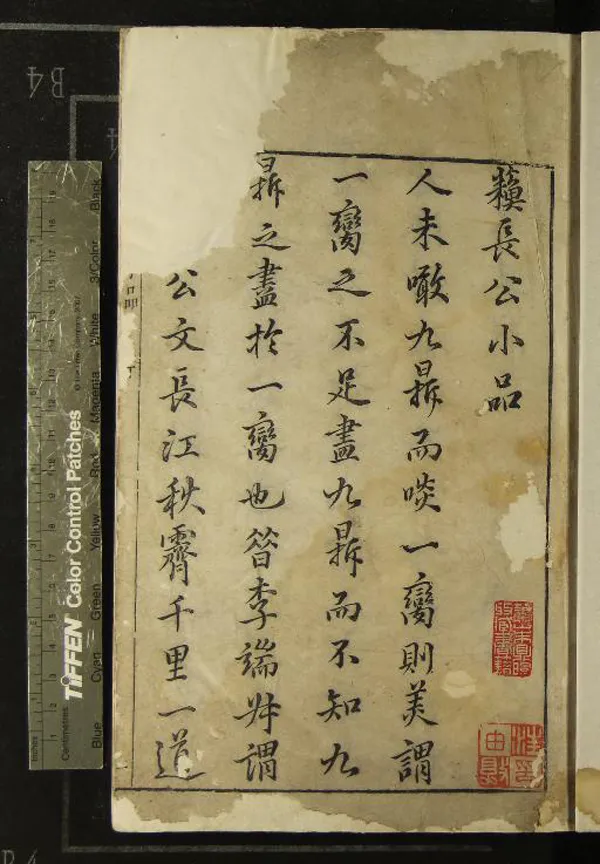 蘓長公小品
人未噉九鼎而啖一臠則美謂
一臠之不足盡九鼎而不知九
鼎之盡於一臠也昔李端叔謂
公文長江秋霽千里一道
TIFFEN Color Control Patches
Inches
Centimetres
Blue Cyan Green Yellow Red Magenta White 3/Color Black
B4